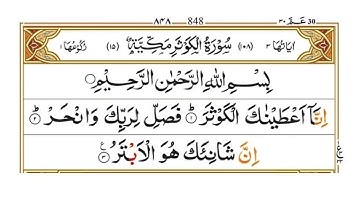 ٨٤٨ 848 عمّ ٣٠ 30
اٰيَاتُهَا ٣ (١٠٨) سُوْرَةُ الْكَوْثَرِ مَكِّيَّةٌ (١٥) رُكُوْعُهَا ١
بِسْمِ اللّٰهِ الرَّحْمٰنِ الرَّحِيْمِ ○
اِنَّاۤ اَعْطَيْنٰكَ الْكَوْثَرَ ؕ﴿١﴾ فَصَلِّ لِرَبِّكَ وَانْحَرْ ؕ﴿٢﴾
اِنَّ شَانِئَكَ هُوَ الْاَبْتَرُ ﴿٣﴾